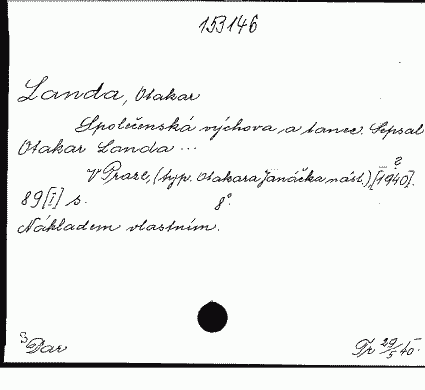 153146
Landa, Otakar
Společenská výchova, a tanec. Sepsal
Otakar Landa ...
V Praze, (typ. Otakara Janáčka, nást.), [1940?].
89 [I] s. 8°.
Nákladem vlastním.
3 Dar
Tr 29/5 40